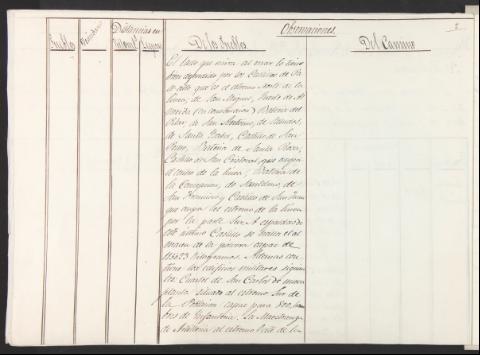 Observaciones.
2
Pueblos
Distancias en
De los Pueblos
Del Camino
El lado que mira al mar lo tiene
bien defendido por los Castillos de Pa
so alto que es el estremo Norte de la
línea, de San Miguel, Fuerte de Al
meida (en construccion) Bateria del
Pilar, de San Antonio, de
de Santa Isabel, Castillo de San
Pedro, Bateria de Santa Rosa,
Castillo de San Cristoval, que ocupa
el centro de la línea, Bateria de
la Concepcion, de San Telmo, de
San Francisco y Castillo de San Juan
que ocupa los estremos de la línea
por la parte Sur. A espaldas de
este ultimo Castillo se halla el al
macen de la pólvora capaz de
kilogramos. Ademas con
tiene los edificios militares siguien
tes. Cuartel de San Carlos de nueva
planta situado al estremo Sur de
la Poblacion capaz para 800 hom
bres de Infanteria. La Maestranza
de Artilleria al estremo Norte de la